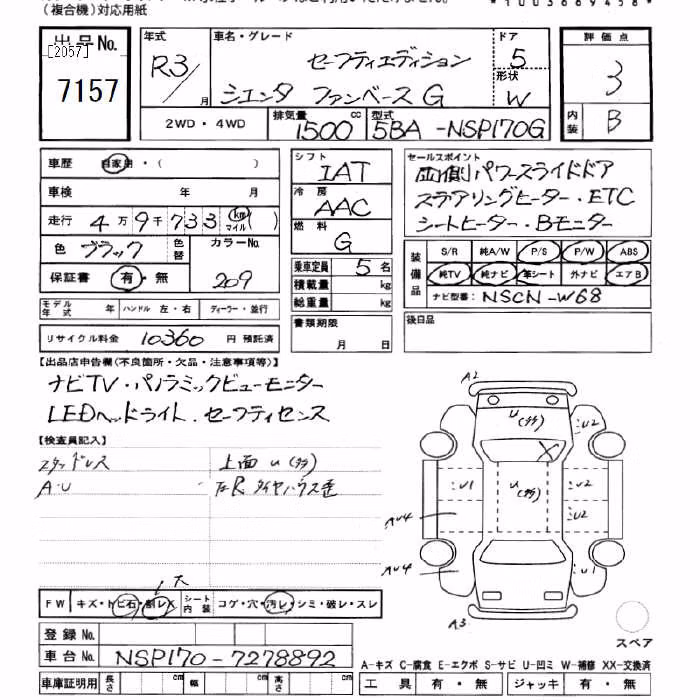 （複合機）対応用紙
*1003669458*
出品No.
[2057]
7157
年式
R3/
月
車名・グレード
セーフティエディション
シエンタ ファンベースG
ドア
5
形状
W
評価点
3
内装
B
2WD・4WD
排気量
1500
cc
型式
5BA-NSP170G
車歴 自家用・( )
車検 年 月
走行 4万9千733 km マイル ( )
色 ブラック 色替 カラーNo. 209
保証書 有・無
シフト
IAT
冷房
AAC
燃料
G
乗車定員 5 名
積載量 kg
総重量 kg
書類期限
月 日
セールスポイント
両側パワースライドドア
ステアリングヒーター・ETC
シートヒーター・Bモニター
装備品
S/R 純A/W P/S P/W ABS
純TV 純ナビ 革シート 外ナビ エアB
ナビ型番: NSCN-W68
後日品
モデル年式 年 ハンドル 左・右 ディーラー・並行
リサイクル料金 10360 円 預託済
【出品店申告欄(不良箇所・欠品・注意事項等)】
ナビTV・パノラミックビューモニター
LEDヘッドライト・セーフティセンス
【検査員記入】
スタッドレス 上面 U(多)
A・U 左R タイヤハウス歪
A2
U(多)
U2
X
U1
U(多)
U2
AU4
U2
AU4
U1
A3
スペア
大
FW キズ・トビ石・割レX シート内装 コゲ・穴・汚レ・シミ・破レ・スレ
登録No.
車台No. NSP170-7278892
車庫証明用 長さ cm 幅 cm 高さ cm
A-キズ C-腐食 E-エクボ S-サビ U-凹ミ W-補修 XX-交換済
工具 有・無 ジャッキ 有・無